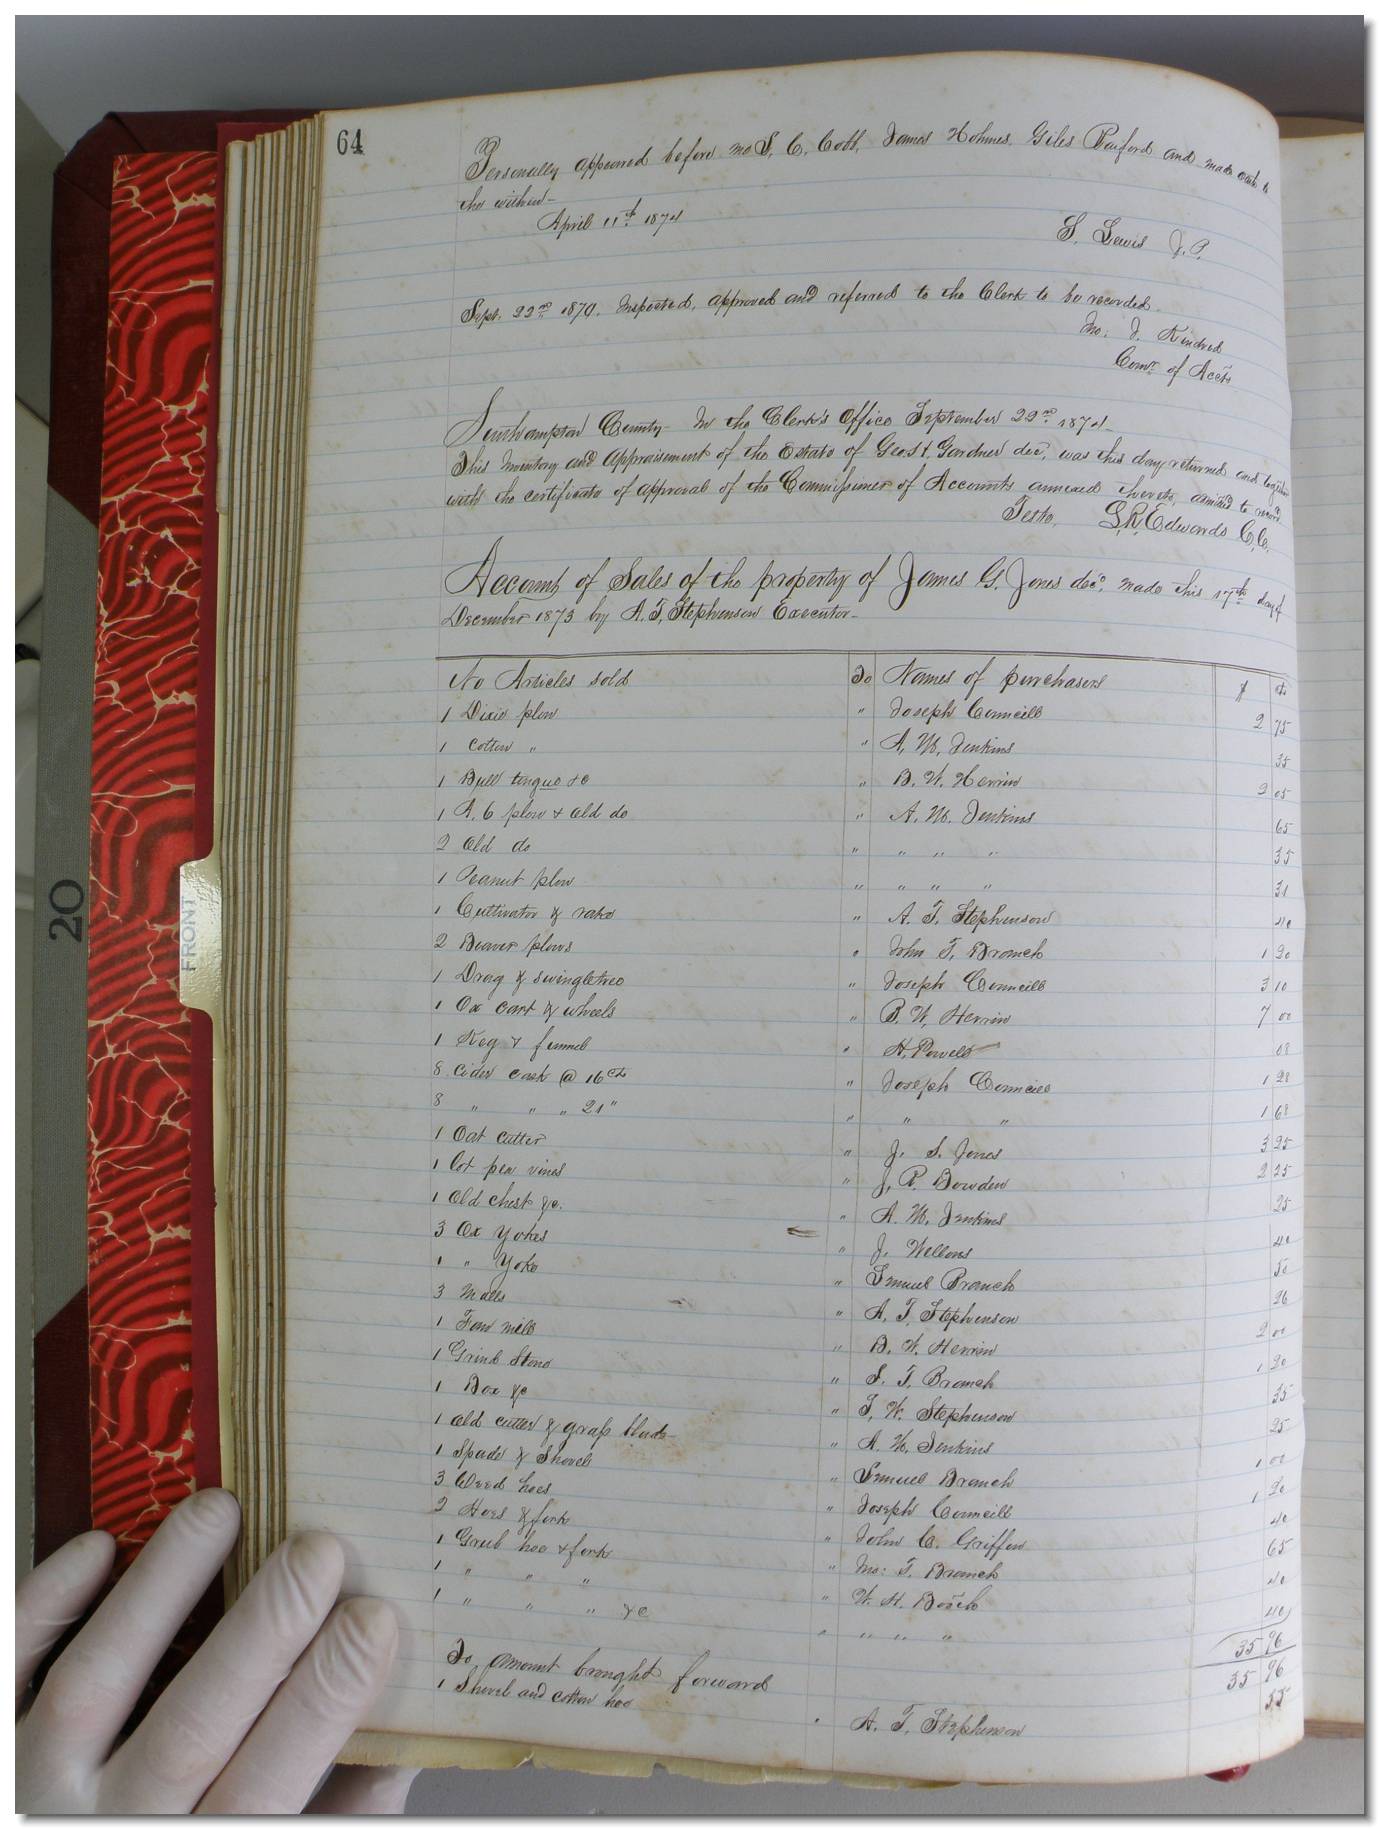 64
Personally appeared before me S. C. Cobb, James Holmes, Giles and made oath to
the within -
April 11th 1874
S. Lewis J.P.
Sept. 22nd 1874. Inspected, approved and referred to the Clerk to be recorded.
Jno: J. Kindred
Comr. of Accts
Southampton County - In the Clerk's Office September 22nd 1874 -
This Inventory and Appraisement of the Estate of Geo. H. Gardner dec, was this day returned and together
with the certificate of approval of the Commissioner of Accounts annexed thereto, admitted to record
Teste, L. R. Edwards C.C.
Account of Sales of the property of James G. Jones decd. made this 17th day of
December 1873 by A. T. Stephenson Executor -
No Articles sold To Names of purchasers $ cts
1 Dixie plow " Joseph Councill 2 75
1 Cotton " " A. M. Jenkins 35
1 Bull tongue &c " B. W. Herrin 2 05
1 A. 6 plow & old do " A. M. Jenkins 65
2 Old do " " " " 35
1 Peanut plow " " " " 31
1 Cultivator & rake " A. T. Stephenson 40
2 Beaver plows " John T. Branch 1 20
1 Drag & swingletree " Joseph Councill 3 10
1 Ox cart & wheels " B. W. Herrin 7 00
1 Keg & funnel " H. Powell 08
8 Cider cask @ 16cts " Joseph Councill 1 28
8 " " " 21" " " " 1 68
1 Oat cutter " J. S. Jones 3 25
1 lot pea vines " J. R. Bowden 2 25
1 Old chest &c. " A. M. Jenkins 25
3 Ox Yokes " J. Wellons 40
1 " Yoke " Samuel Branch 50
3 Malls " A. T. Stephenson 26
1 Fan mill " B. W. Herrin 2 00
1 Grind Stone " S. T. Branch 1 20
1 Box &c " T. W. Stephenson 35
1 Old cutter & grass blade " A. M. Jenkins 25
1 Spade & Shovel " Samuel Branch 1 00
3 Weed hoes " Joseph Councill 1 20
2 Hoes & fork " John C. Griffin 40
1 Grub hoe & fork " Jno: T. Branch 65
1 " " " " W. H. 40
1 " " " &c " " " " 40
35 96
To amount brought forward 35 96
1 Shovel and cotton hoe " A. T. Stephenson 55
20
FRONT